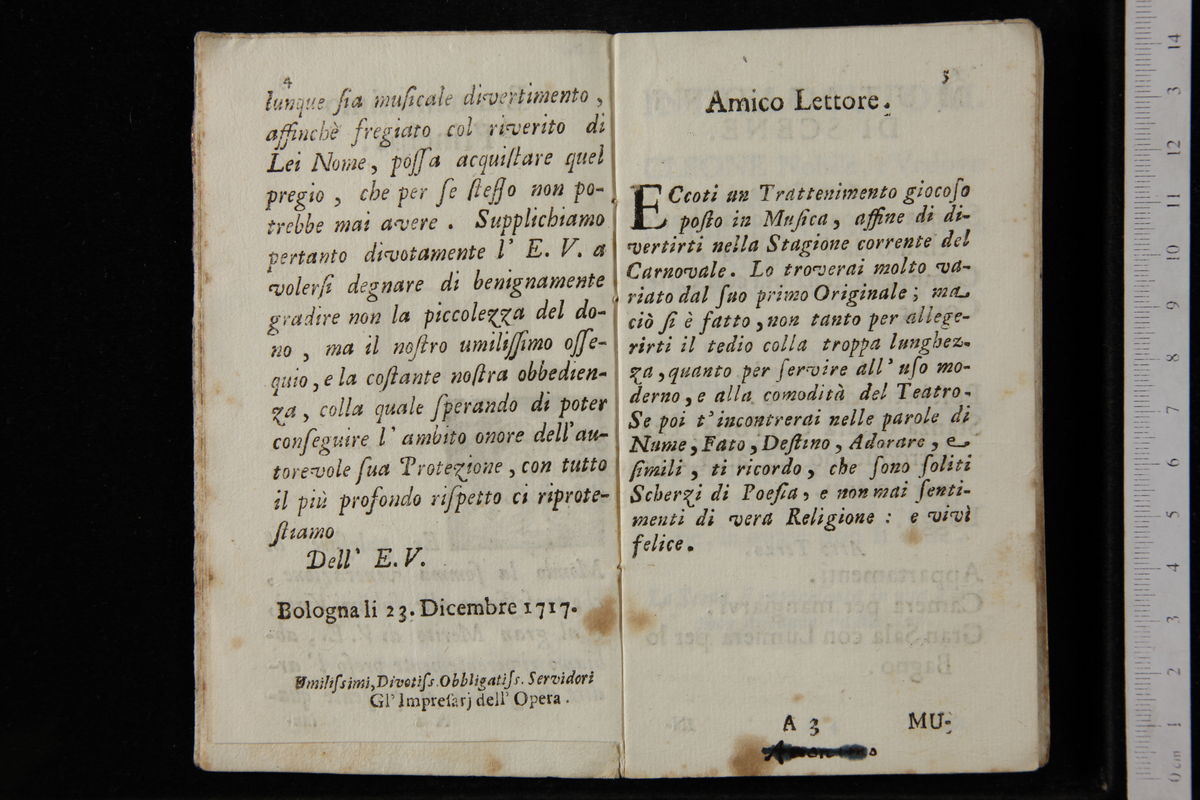 4
lunque ſia muſicale divertimento ,
affinchè fregiato col riverito di
Lei Nome, poſſa acquiſtare quel
pregio , che per ſe ſteſſo non po-
trebbe mai avere . Supplichiamo
pertanto divotamente l' E. V. a
volerſi degnare di benignamente
gradire non la piccolezza del do-
no , ma il noſtro umiliſſimo oſſe-
quio, e la coſtante noſtra obbedien-
za , colla quale ſperando di poter
conſeguire l' ambito onore dell'au-
torevole ſua Protezione , con tutto
il più profondo riſpetto ci riprote-
ſtiamo
Dell' E. V.
Bologna li 23. Dicembre 1717.
Umiliſsimi, Divotiſs. Obbligatiſs. Servidori
Gl' Impreſarj dell' Opera .
5
Amico Lettore.
ECcoti un Trattenimento giocoſo
poſto in Muſica, affine di di-
vertirti nella Stagione corrente del
Carnovale. Lo troverai molto va-
riato dal ſuo primo Originale ; ma
ciò ſi è fatto , non tanto per allege-
rirti il tedio colla troppa lunghez-
za, quanto per ſervire all' uſo mo-
derno, e alla comodità del Teatro.
Se poi t'incontrerai nelle parole di
Nume, Fato, Deſtino, Adorare, e
ſimili , ti ricordo , che ſono ſoliti
Scherzi di Poeſia, e non mai ſenti-
menti di vera Religione : e vivi
felice.
A 3 MU-